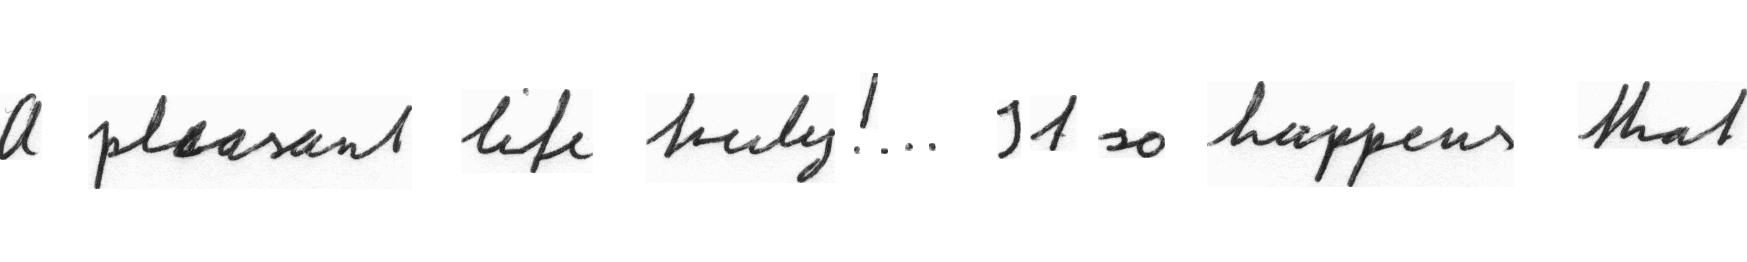 A pleasant life truly!... It so happens that